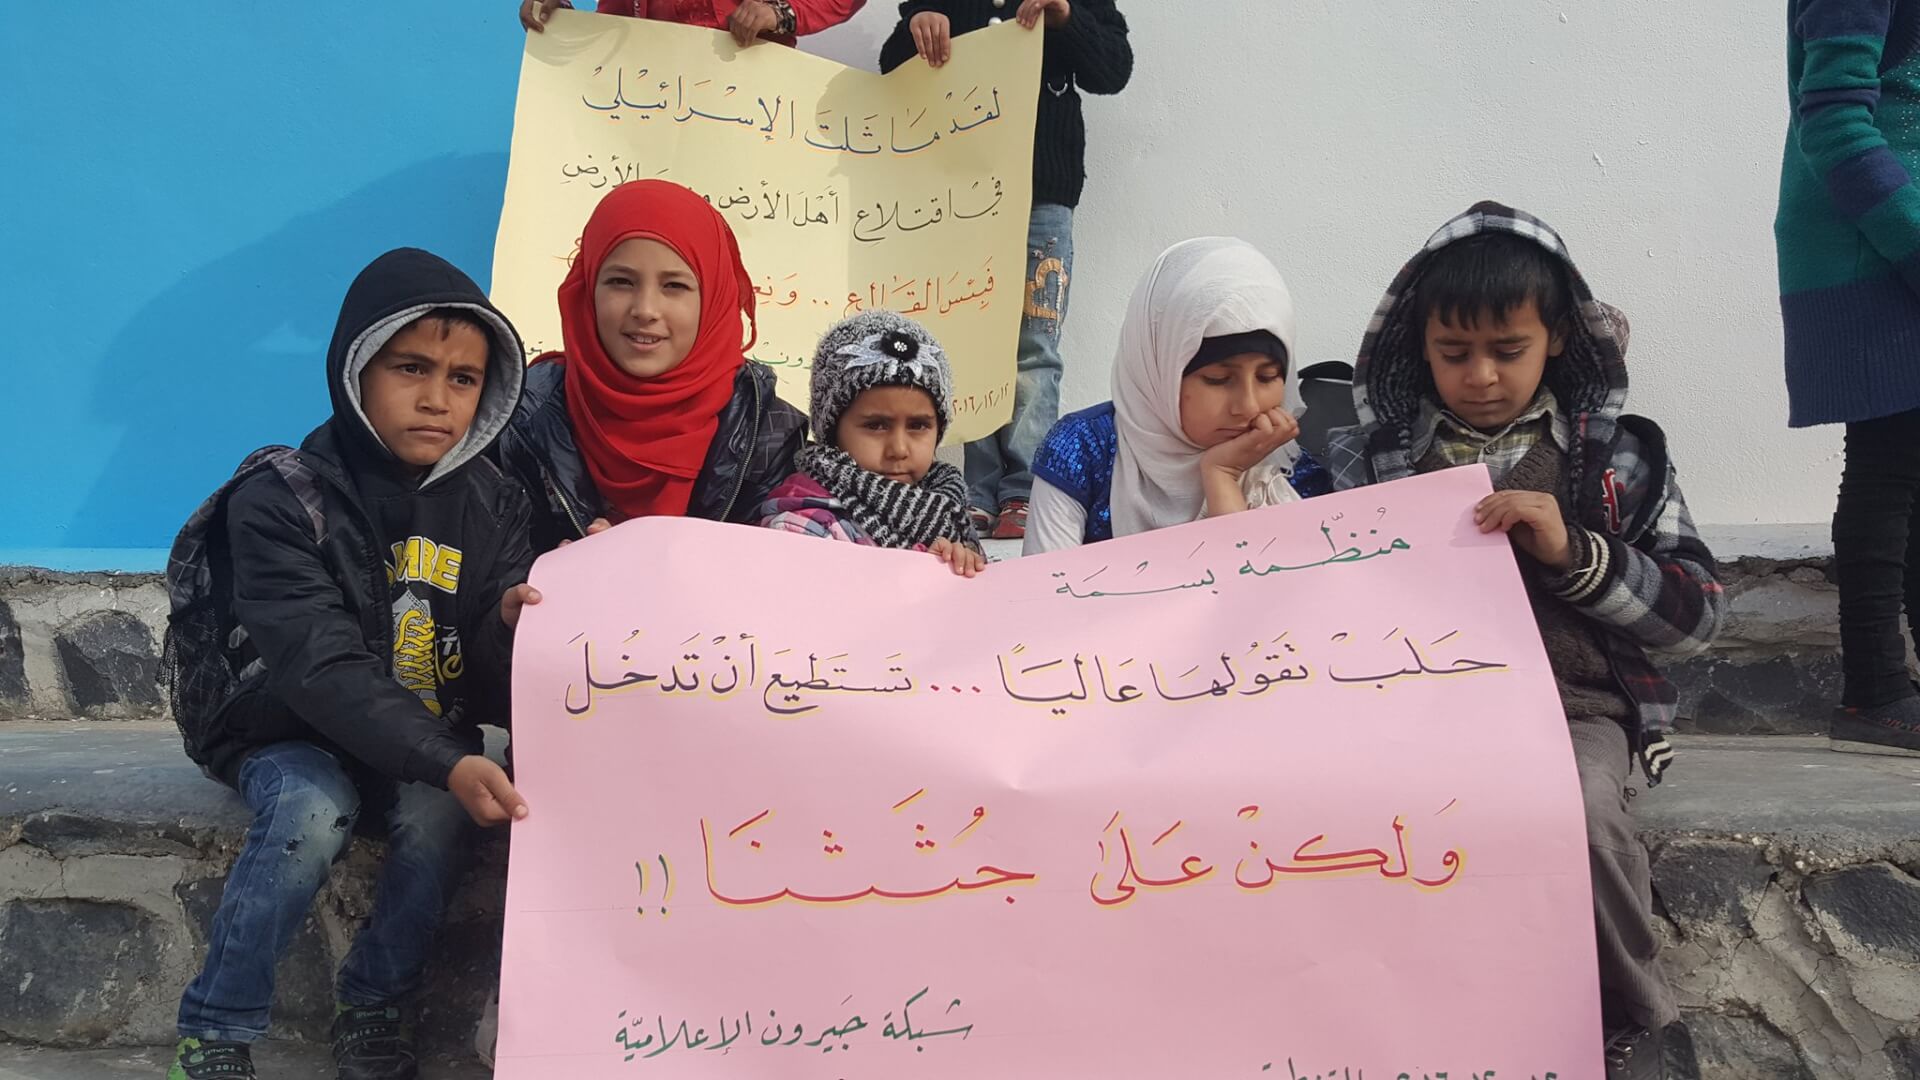 لقَدْ مَاثَلتَ الإسْرَائيْليْ
فيْ اقتلاع أهْلَ الأرْض الأرضِ
فَبِئسَ القَالع .. وَنِعْ
٢٠١٦/١٢/١٢
مُنظّمَة بَسْمَة
حَلَبْ تقَوُلهَا عَاليَاً ... تَستَطيعَ أنْ تَدخُلَ
وَلكنْ عَلىَ جُثَثنَا !!
شبكة جَيرون الإعلاميّة